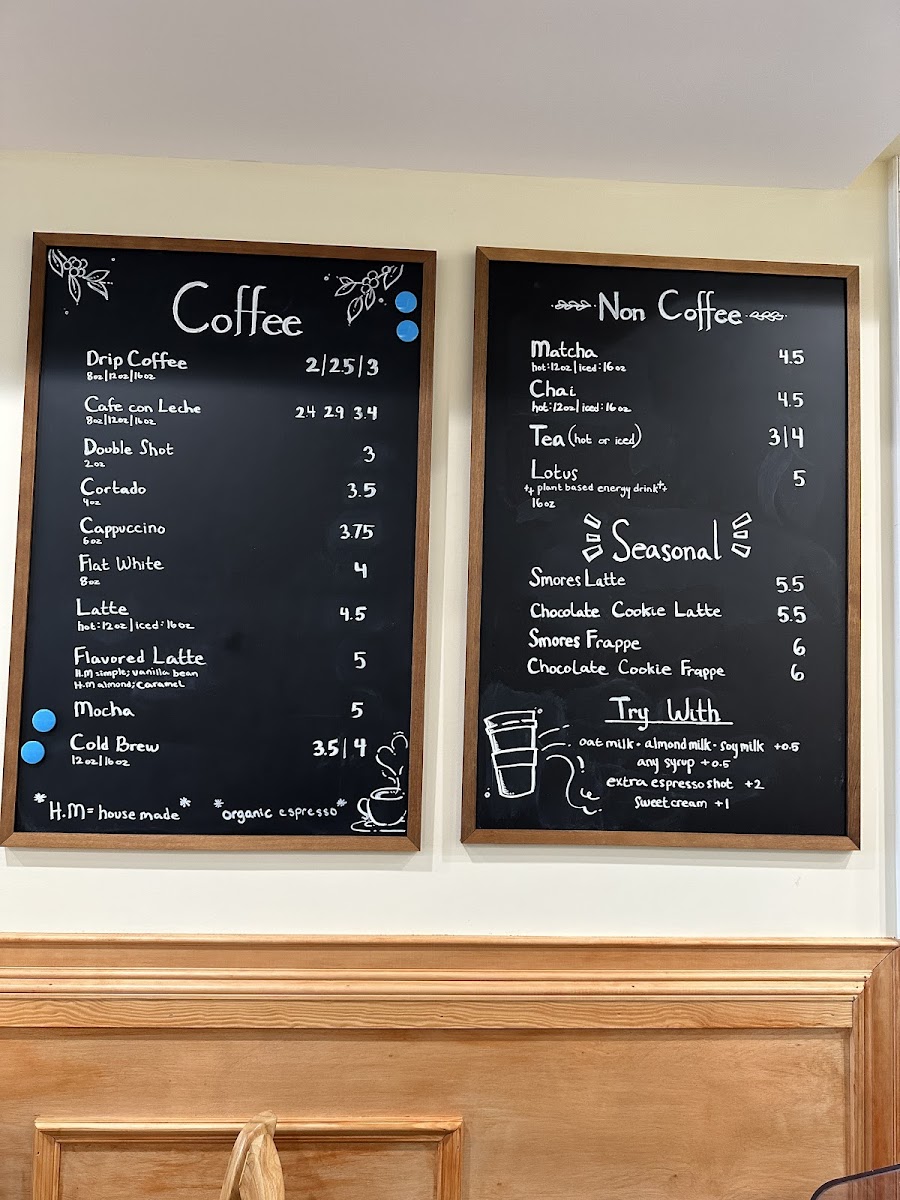 Coffee
Drip Coffee 2/25/3
8oz/12oz/16oz
Cafe con Leche 24 29 3.4
8oz/12oz/16oz
Double Shot 3
2oz
Cortado 3.5
4oz
Cappuccino 3.75
6oz
Flat White 4
8oz
Latte 4.5
hot:12oz/iced:16oz
Flavored Latte 5
H.M simple; vanilla bean
H.M almond; caramel
Mocha 5
Cold Brew 3.5/4
12oz/16oz
*H.M = house made* *organic espresso*
Non Coffee
Matcha 4.5
hot:12oz/iced:16oz
Chai 4.5
hot:12oz/iced:16oz
Tea (hot or iced) 3/4
Lotus 5
plant based energy drink
16oz
Seasonal
Smores Latte 5.5
Chocolate Cookie Latte 5.5
Smores Frappe 6
Chocolate Cookie Frappe 6
Try With
oat milk • almond milk • soy milk +0.5
any syrup +0.5
extra espresso shot +2
sweet cream +1